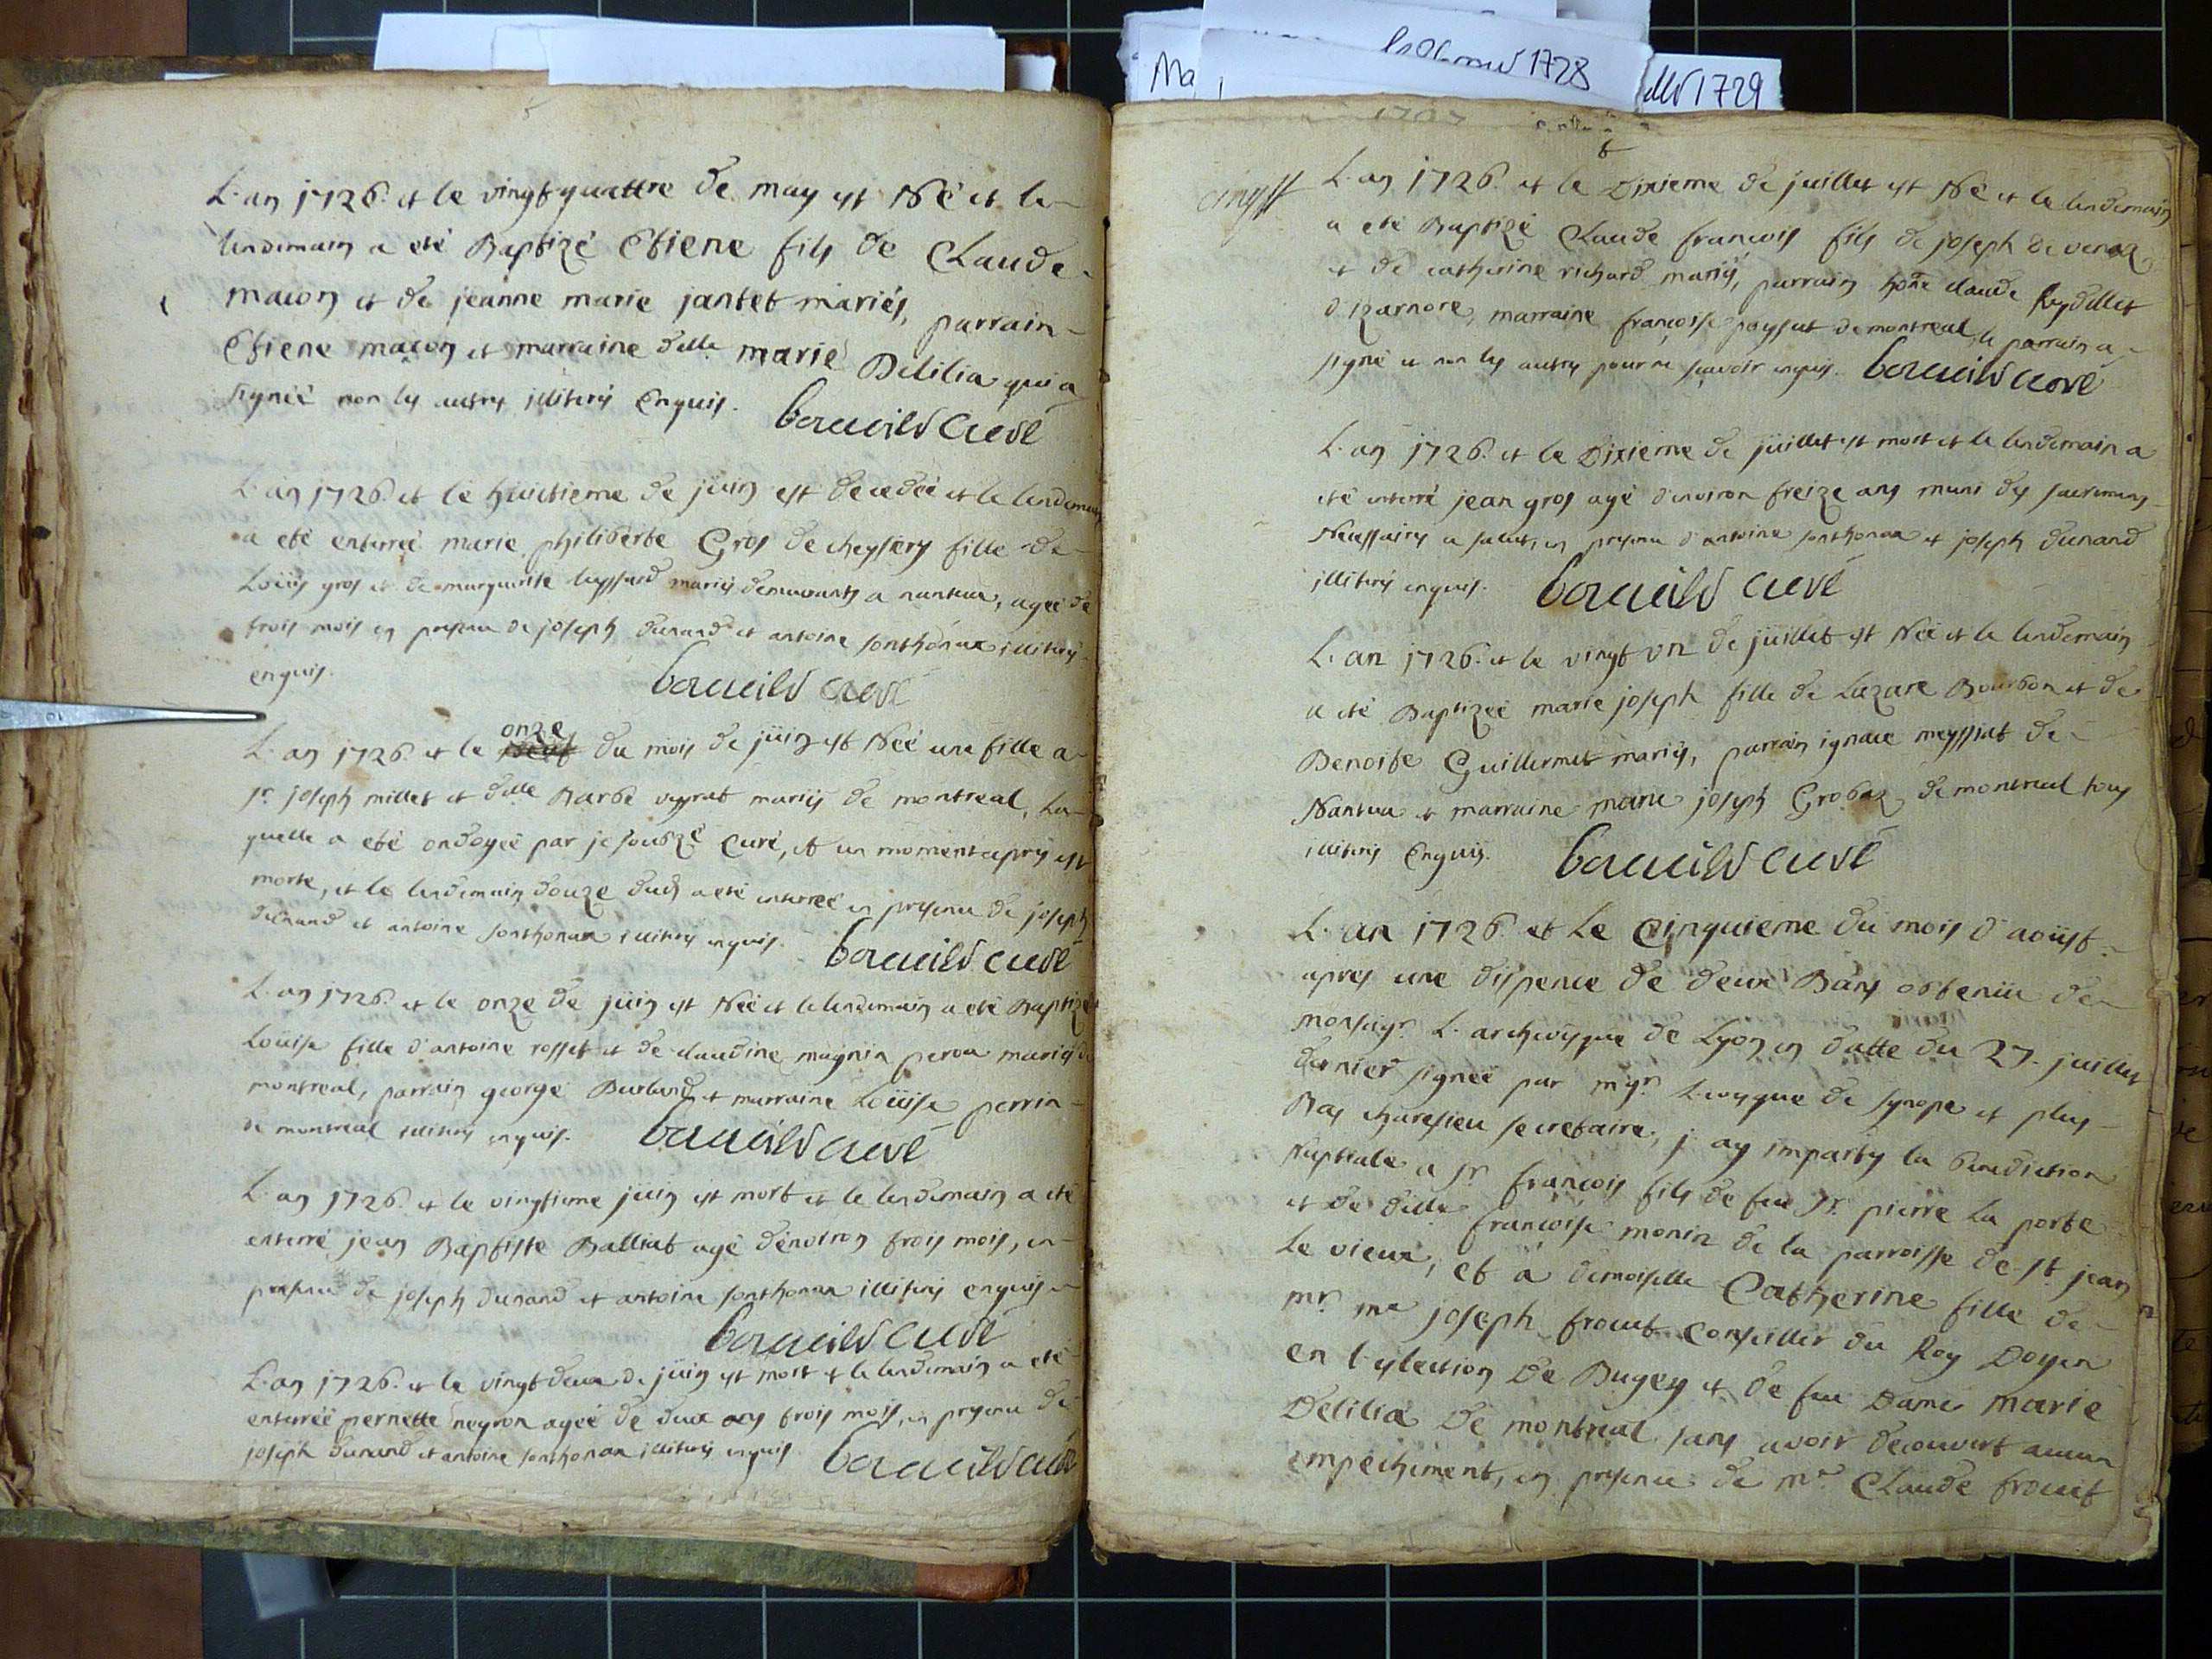 1728
1729
L'an 1726. et le vingt quattre de may est Né et le
lendemain a eté Baptizé Etiene fils de Claude
macon et de jeanne marie jantet mariés, parrain
Etiene maçon et marraine delle marie Delilia qui a
signéé non les autres illiterés Enquis.
curé
L'an 1726. et le huictieme de juin est decedéé et le lendemain
a eté enterréé marie philiberte Gros de cheysery fille de
Loüis gros et de marguerite mariés demeurants a nantua, ageé de
trois mois en presence de joseph dunand et antoine sonthonax illiterés
enquis.
curé
onze
L'an 1726. et le neuf du mois de juin est Néé une fille a
sr. joseph millet et delle Barbe veyrat mariés de montreal, La
quelle a eté ondoyéé par je soubzé Curé, et un moment apres est
morte, et le lendemain douze dud a eté enterréé en presence de joseph
dunand et antoine sonthonax illiterés enquis.
curé
L'an 1726. et le onze de juin est Néé et le lendemain a eté Baptizéé
Loüise fille d'antoine rosset et de claudine magnin perou mariés de
montreal, parrain george Burland et marraine Loüise perrin
de montreal illiterés enquis.
curé
L'an 1726. et le vingtieme juin est mort et le lendemain a eté
enterré jean Baptiste Balliat agé d'environ trois mois, en
presence de joseph dunand et antoine sonthonax illiterés enquis
curé
L'an 1726. et le vingt deux de juin est mort et le lendemain a eté
enterréé pernette neyron agéé de deux ans trois mois, en presence de
joseph dunand et antoine sonthonax illiterés enquis.
curé
L'an 1726. et le Dixieme de juillet est Né et le lendemain
a eté Baptizé Claude francois fils de joseph de venoz
et de catherine richard mariés, parrain hone claude Reydellet
d'izarnore, marraine françoise paysat de montreal, le parrain a
signé et non les autres pour ne scavoir enquis. curé
L'an 1726. et le Dixieme de juillet est mort et le lendemain a
eté enterré jean gros agé d'environ treize ans muni des sacremens
Necessaires a salut, en presence d'antoine sonthonax et joseph dunand
illiterés enquis. curé
L'an 1726. et le vingt un de juillet est Néé et le lendemain
a eté Baptizéé marie joseph fille de Lazare Bourbon et de
Benoite Guillermet mariés, parrain ignace meyssiat de
Nantua et marraine marie joseph Grobaz de montreal tous
illiterés Enquis. curé
L'an 1726. et Le Cinquieme du mois d'aoüst
apres une dispence de deux Bans obtenüe de
monseigr. L'archevesque de Lyon en datte du 27. juillet
dernier signéé par mgr. L'evesque de synope et plus
Bas charesieu secretaire, j'ay imparty la benediction
Nuptiale a sr. françois fils de feu sr. pierre La porte
et de delle françoise monin de la parroisse de St jean
Le vieux, et à demoiselle Catherine fille de
mr. me joseph frouct Conseiller du Roy Doyen
en l'eslection De Bugey et de feu Dame Marie
Delilia De montreal sans avoir decouvert aucun
empechement, en presence de me Claude frouct